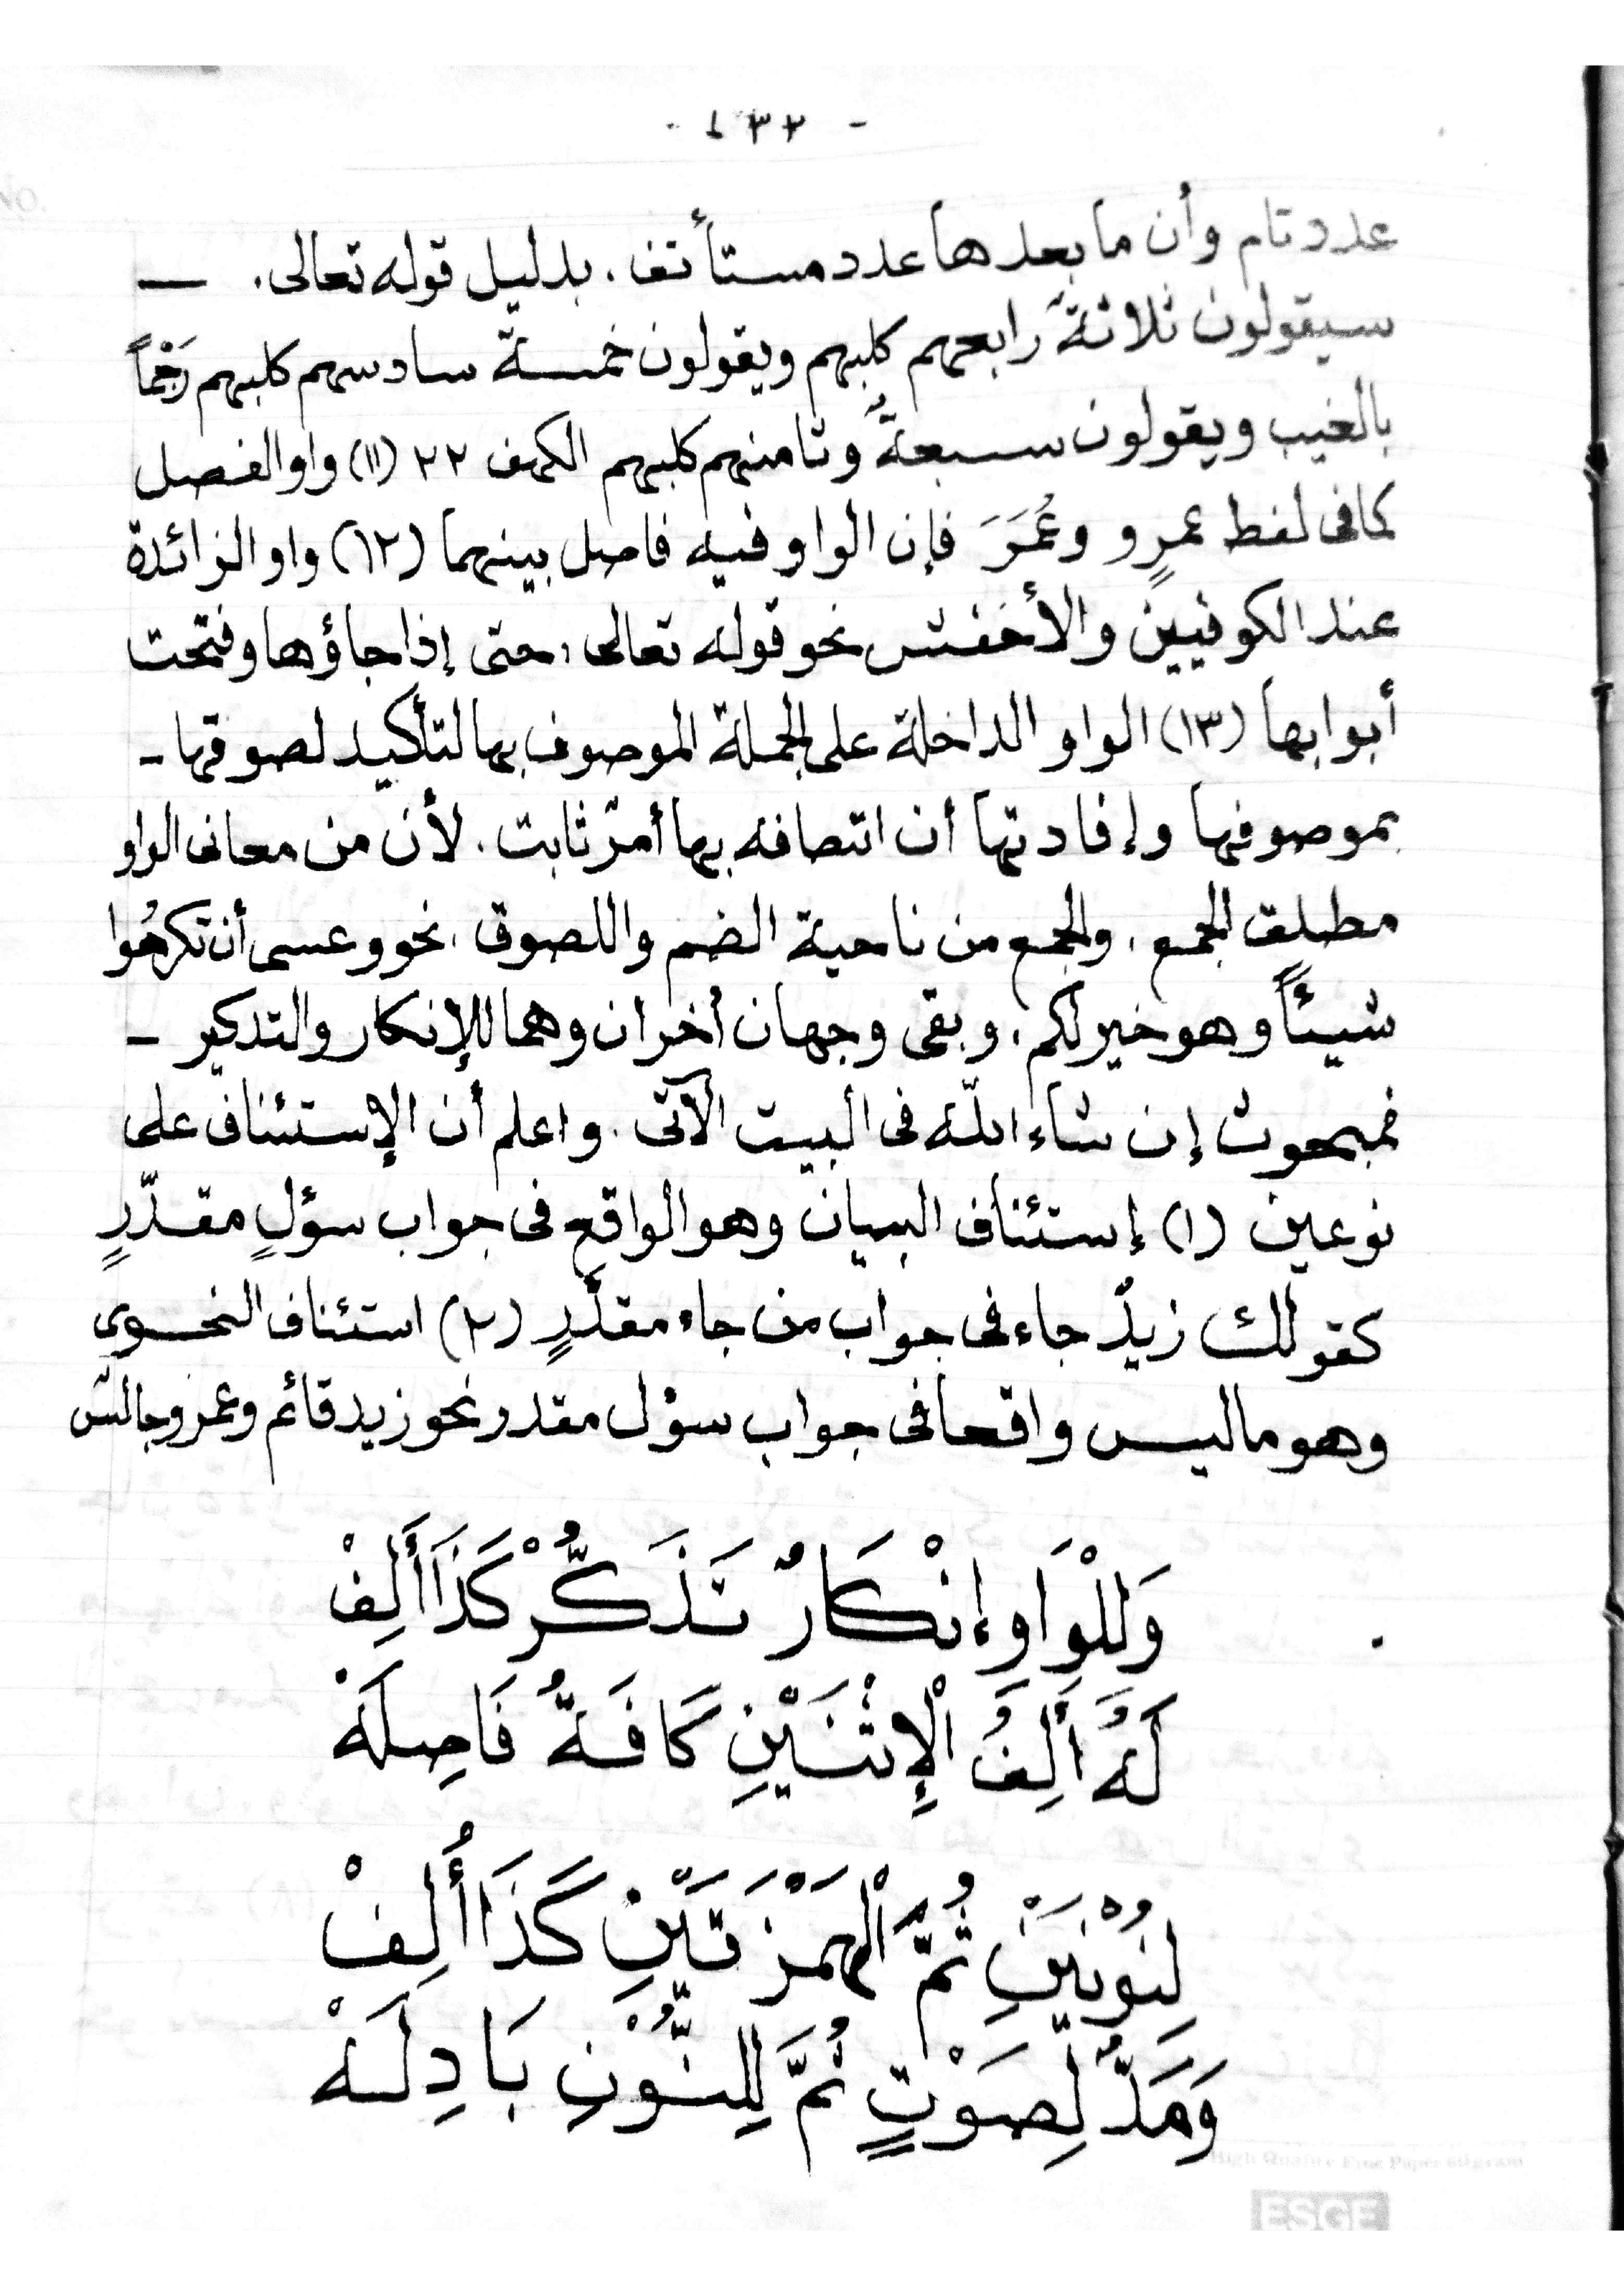 - ١٣٢ -
عدد تام وأن ما بعدها عدد مستأنف . بدليل قوله تعالى . —
سيقولون ثلاثةٌ رابعهم كلبهم ويقولون خمسة سادسهم كلبهم رَجْماً
بالغيب ويقولون سبعةٌ وثامنهم كلبهم الكهف ٢٢ (١١) واو الفصل
كما فى لفظ عمرٍو وعُمَرَ فإن الواو فيه فاصل بينهما (١٢) واو الزائدة
عند الكوفيين والأخفش نحو قوله تعالى ، حتى إذا جاؤها وفتحت
أبوابها (١٣) الواو الداخلة على الجملة الموصوف بها لتأكيد لصوقها -
بموصوفها وإفادتها أن اتصافه بها أمرٌ ثابت . لأن من معانى الواو
مطلق الجمع ، والجمع من ناحية الضم واللصوق . نحو وعسى أن تكرهُوا
شيئاً وهو خير لكم . وبقى وجهان أخران وهما للإنكار والتدكير -
فمبحوث إن شاء اللّه فى البيت الآتى . واعلم أن الإستئناف على
نوعين (١) إستئناف البيان وهو الواقع فى جواب سؤلٍ مقدّرٍ
كقولك زيدٌ جاء فى جواب من جاء مقدّرٍ (٢) استئناف النحوى
وهو ما ليس واقعا فى جواب سؤل مقدر نحو زيد قائم وعمرو جالس
وَلِلْوَاوِ إنْكَارٌ تَذَكُّرْ كَذَا أَلِفْ
لَهُ أَلِفُ الْإِثْنَيْنِ كَافَةٌ فَاصِلَهْ
لِنُوْنَيْنِ ثُمَّ الْهَمْزَتَيْنِ كَذَا أُلِفْ
وَمَدٌّ لِصَوْتٍ ثُمَّ لِلنُّوْنِ بَادِلَهْ
High Quality Fine Paper 60gram
ESGE
No.